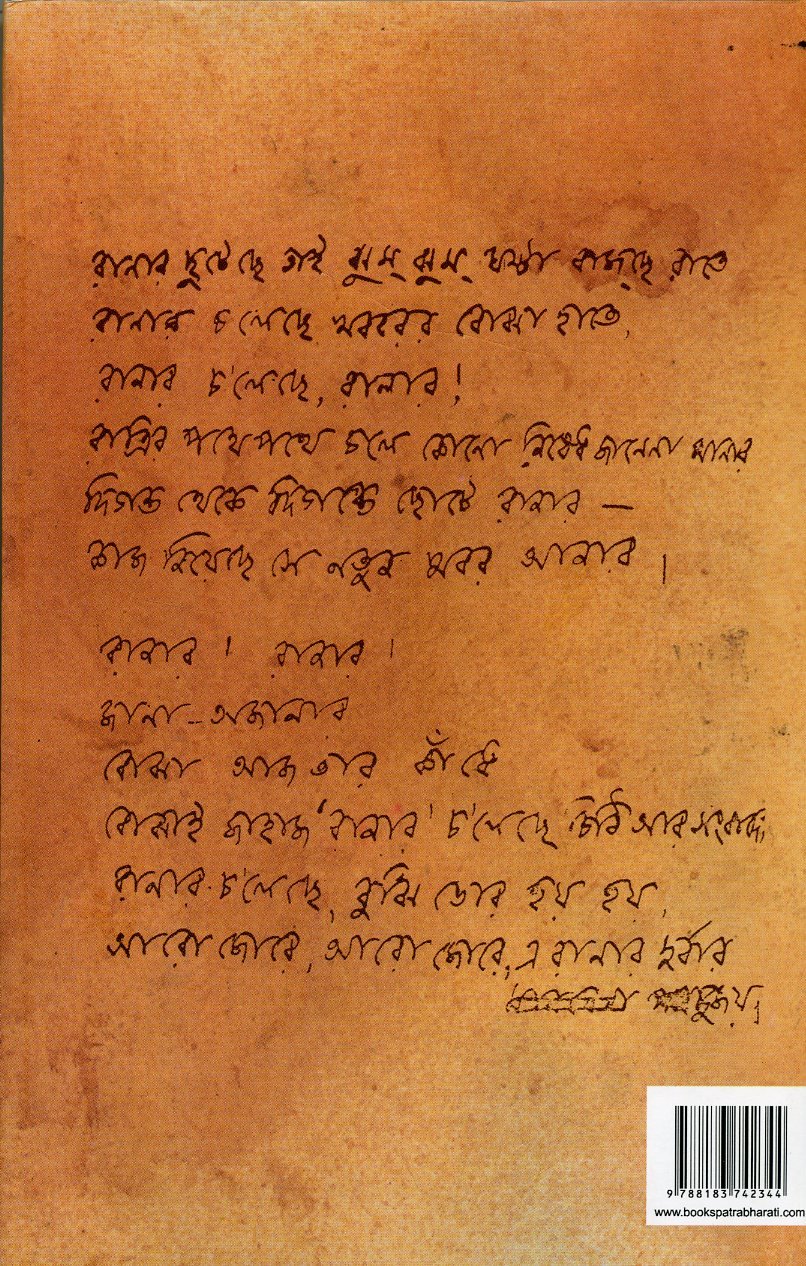 রানার ছুটেছে তাই ঝুম্ ঝুম্ ঘন্টা বাজ্‌ছে রাতে
রানার চ'লেছে খবরের বোঝা হাতে,
রানার চ'লেছে, রানার!
রাত্রির পথে পথে চলে কোনো নিষেধ জানেনা মানার
দিগন্ত থেকে দিগন্তে ছোটে রানার —
কাজ নিয়েছে সে নতুন খবর আনার।
রানার! রানার!
জানা-অজানার
বোঝা আজ তার কাঁধে
বোঝাই জাহাজ 'রানার' চ'লেছে চিঠি আর সংবাদে;
রানার চ'লেছে, বুঝি ভোর হয় হয়,
আরো জোরে, আরো জোরে, এ রানার দুর্বার
দুর্জয়।
9 788183 742344
www.bookspatrabharati.com